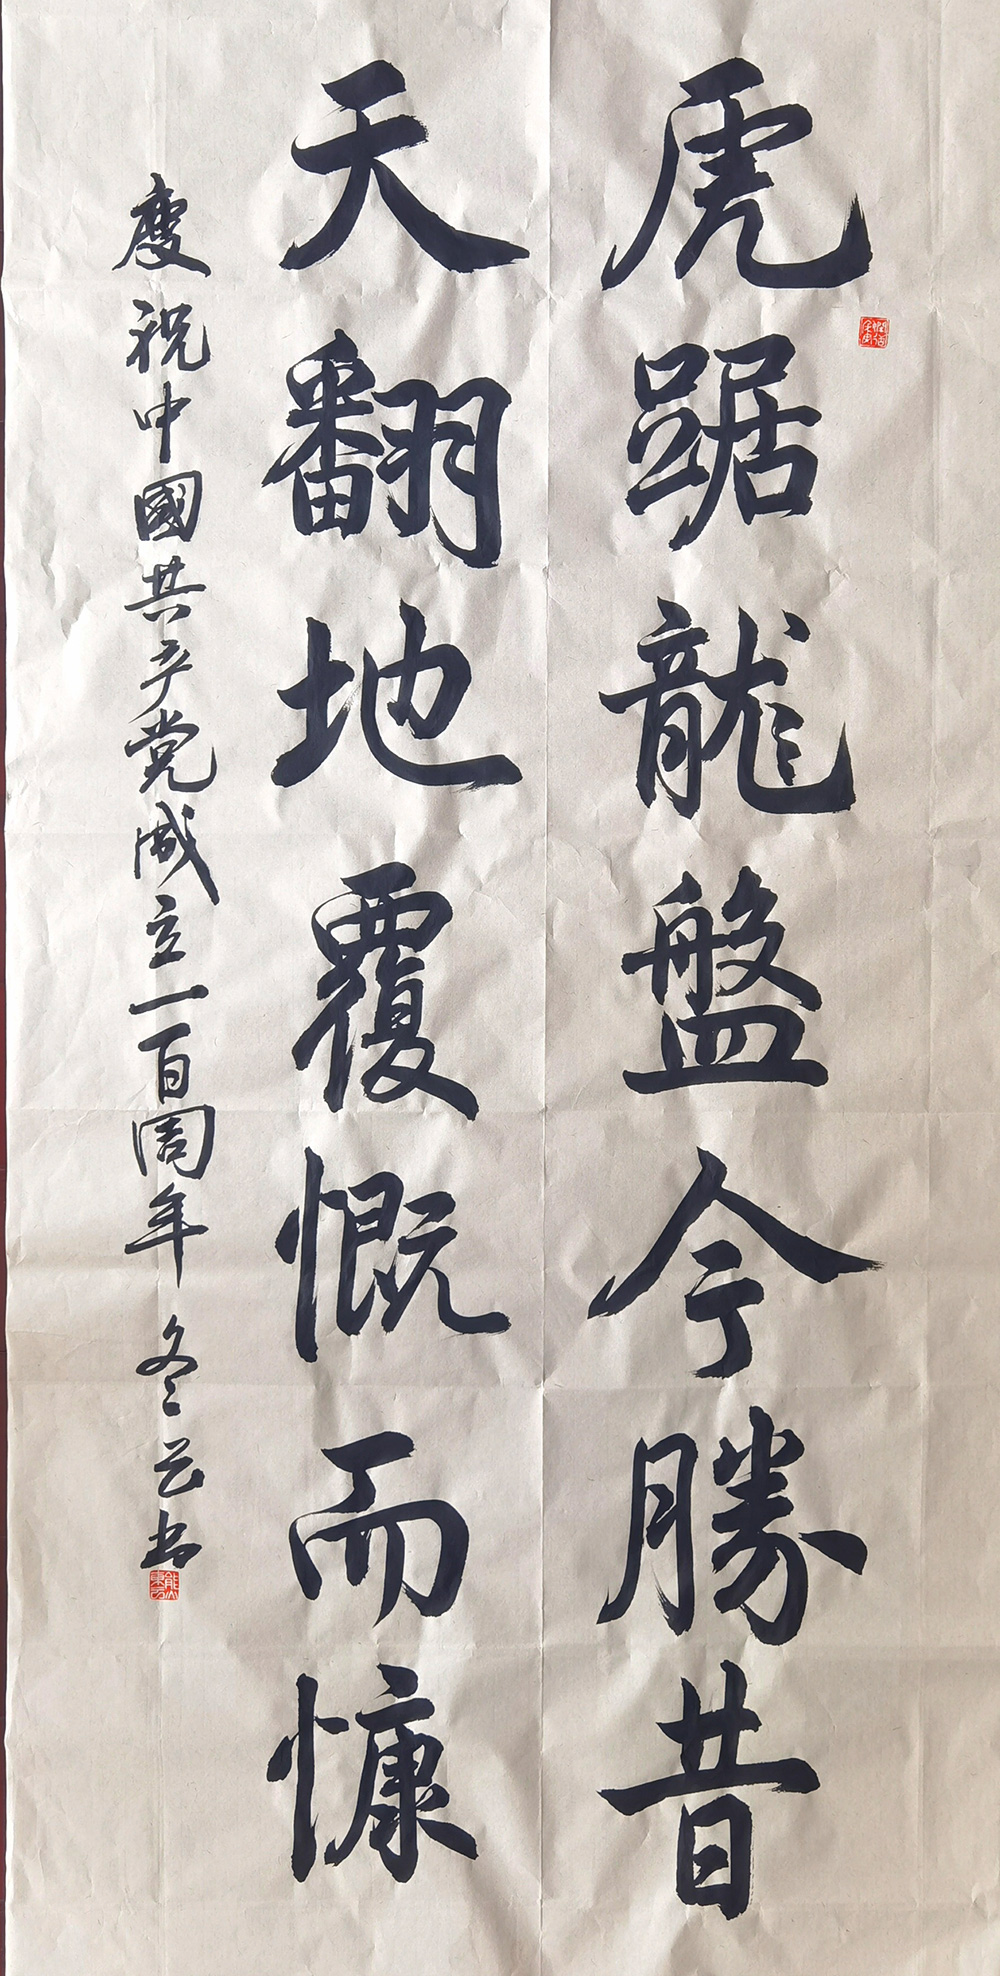 虎踞龍盤今勝昔
天翻地覆慨而慷
慶祝中國共产党成立一百周年 冬云书